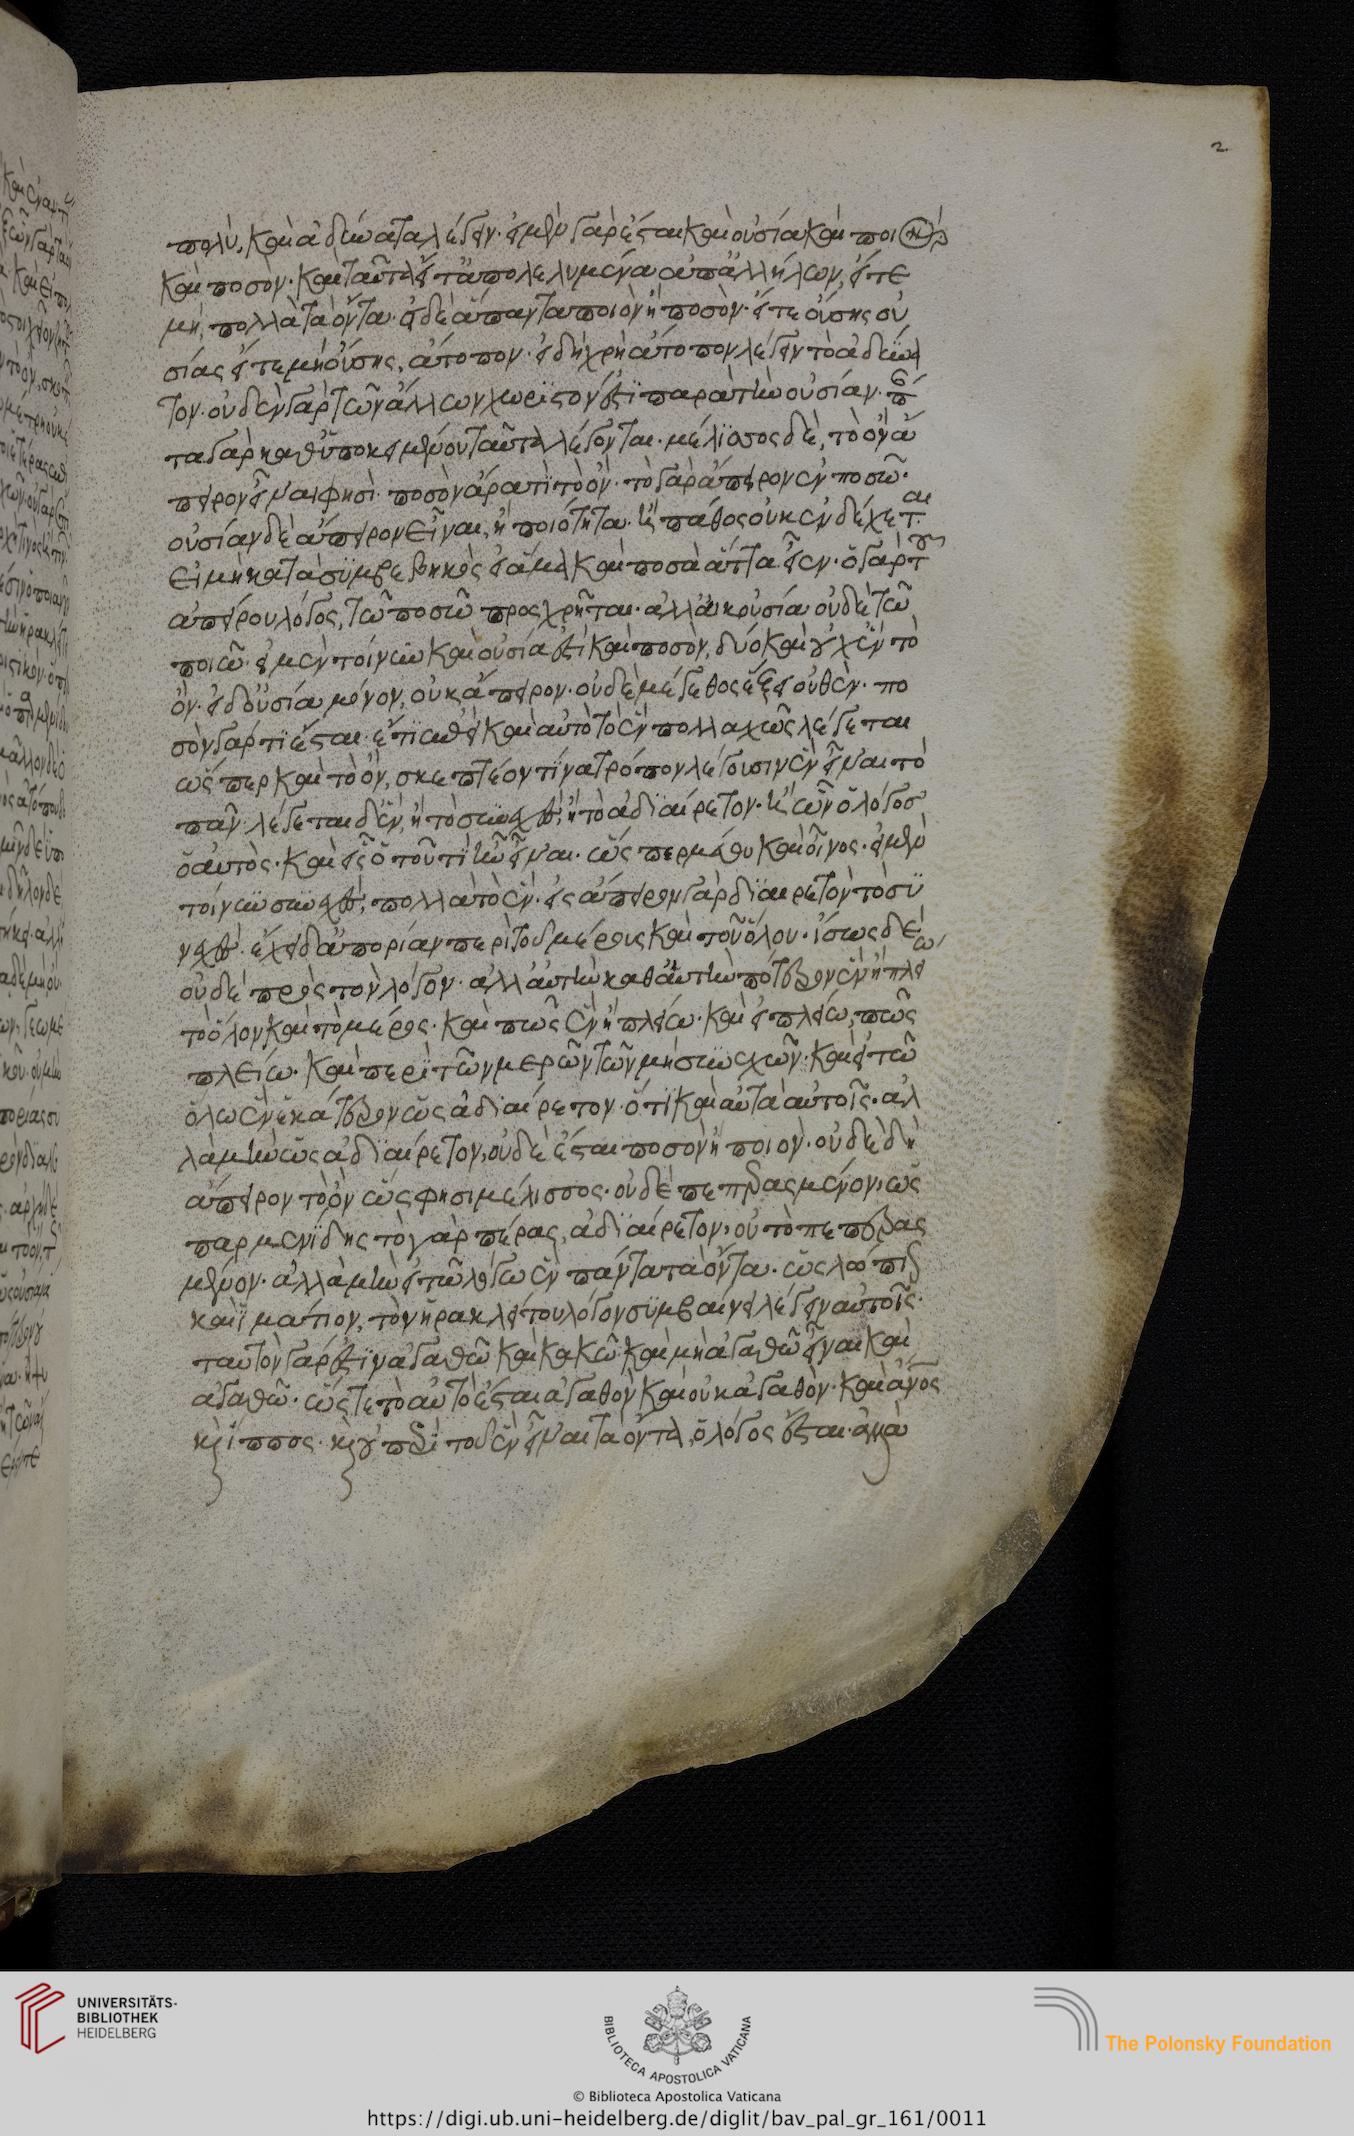 2
πολὺ, καὶ ἀδύνατα λέγειν· εἰ μὲν γὰρ ἔσται καὶ οὐσία καὶ ποιὸν
καὶ ποσον· καὶ ταῦτα εἴτ ἀπολελυμένα ἀπ ἀλλήλων, εἴτε
μὴ, πολλὰ τὰ ὄντα· εἰ δὲ ἅπαντα ποιὸν ἢ ποσὸν· εἴτε οὔσης οὐ
σίας εἴτε μὴ οὔσης, ἄτοπον· εἰ δὴ χρὴ ἄτοπον λέγειν τὸ ἀδύνα
τον· οὐδὲν γὰρ τῶν ἄλλων χωρϊστόν ἐστϊ παρὰ τὴν οὐσίαν· πάν
τα γὰρ καθ ὑποκειμένου ταῦτα λέγονται· μέλϊσσος δὲ, τὸ ὂν ἄ
πειρον εἶναι φησὶ· ποσὸν ἄρα τὶ τὸ ὄν· τὸ γὰρ ἄπειρον ἐν ποσῶ·
οὐσίαν δὲ ἄπειρον εἶναι, ἢ ποιότητα· ἢ πάθος οὐκ ἐνδέχεται
εἰ μὴ κατὰ συμβεβηκὸς εἰ ἅμα καὶ ποσὰ ἄττα εἶεν· ὁ γὰρ τοῦ
ἀπείρου λόγος, τῶ ποσῶ προσχρῆται· ἀλλ οὐκ οὐσία οὐδὲ τῶ
ποιῶ· εἰ μὲν τοίνυν καὶ οὐσία ἐστὶ καὶ ποσὸν, δύο καὶ οὐχ ἓν τὸ
ὄν· εἰ δ οὐσία μόνον, οὐκ ἄπειρον· οὐδὲ μέγεθος ἕξει οὐθὲν· πο
σὸν γάρ τϊ ἔσται· ἔτϊ ἐπεὶ καὶ αὐτὸ τὸ ἓν πολλαχῶς λέγεται
ὥσπερ καὶ τὸ ὂν, σκεπτέον τίνα τρόπον λέγουσιν ἓν εἶναι τὸ
πᾶν· λέγεται δ ἓν, ἢ τὸ συνεχὲς, ἢ τὸ ἀδϊαίρετον· ἢ ὧν ὁ λόγος
ὁ αὐτὸς· καὶ εἷς ὁ τοῦ τὶ ἦν εἶναι· ὥσπερ μέθυ καὶ οἶνος· εἰ μὲν
τοίνυν συνεχὲς, πολλὰ τὸ ἕν· εἰς ἄπειρον γὰρ δϊαιρετὸν τὸ συ
νεχὲς· ἔχει δ ἀπορίαν περὶ τοῦ μέρους καὶ τοῦ ὅλου· ἴσως δὲ
οὐδὲ πρὸς τὸν λόγον· ἀλλ αὐτὴν καθ αὑτὴν πότερον ἓν ἢ πλείω
τὸ ὅλον καὶ τὸ μέρος· καὶ πῶς ἓν ἢ πλείω· καὶ εἰ πλείω, πῶς
πλείω· καὶ περὶ τῶν μερῶν τῶν μὴ συνεχῶν· καὶ εἰ τῶ
ὅλω ἓν ἑκάτερον ὡς ἀδιαίρετον· ὅτϊ καὶ αὐτὰ αὐτοῖς· ἀλ
λὰ μὴν ὡς ἀδϊαίρετον, οὐδὲ ἔσται ποσὸν ἢ ποιον· οὐδὲ δὴ
ἄπειρον τὸ ὂν ὥς φησι μέλισσος· οὐδὲ πεπερασμένον, ὡς
παρμενϊδης τὸ γὰρ πέρας, ἀδϊαίρετον, οὐ τὸ πεπερας
μένον· ἀλλὰ μὴν εἰ τῶ λόγω ἓν πάντα τὰ ὄντα· ὡς λώπιον
καὶ ϊμάτιον, τὸν ἡρακλείτου λόγον συμβαίνει λέγειν αὐτοῖς·
ταυτὸν γὰρ ἔσται ἀγαθῶ καὶ κακῶ καὶ μὴ ἀγαθῶ εἶναι καὶ
ἀγαθῶ· ὥστε τὸ αὐτὸ ἔσται ἀγαθὸν καὶ οὐκ ἀγαθὸν· καὶ ἄνος
καὶ ἵππος· καὶ οὐ περὶ τοῦ ἓν εἶναι τὰ ὄντα, ὁ λόγος ἔσται· ἀλλὰ
UNIVERSITÄTS-
BIBLIOTHEK
HEIDELBERG
BIBLIOTECA APOSTOLICA VATICANA
The Polonsky Foundation
© Biblioteca Apostolica Vaticana
https://digi.ub.uni-heidelberg.de/diglit/bav_pal_gr_161/0011